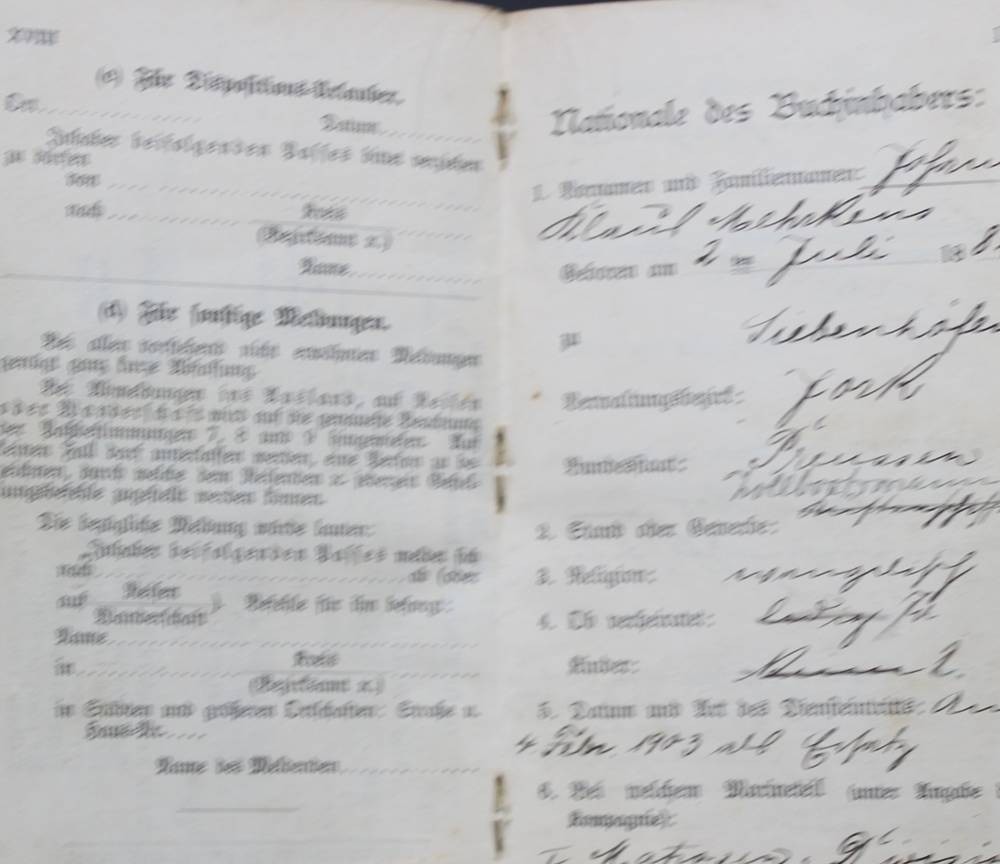 XVIII
(c) Für Dispositions-Urlauber.
Den
Datum
Inhaber beifolgenden Passes bittet verziehen
zu dürfen
von
nach Kreis
(Bezirksamt x.)
Name
(d) Für sonstige Meldungen.
Bei allen vorstehend nicht erwähnten Meldungen
genügt ganz kurze Abfassung.
Bei Abmeldungen ins Ausland, auf Reisen
oder Wanderschaft wird auf die genaueste Beachtung
der Paßbestimmungen 7, 8 und 9 hingewiesen. Auf
keinen Fall darf unterlassen werden, eine Person zu be-
zeichnen, durch welche dem Reisenden x. jederzeit Gestel-
lungsbefehle zugestellt werden können.
Die bezügliche Meldung würde lauten:
„Inhaber beifolgenden Passes meldet sich
nach ab (oder
auf Reisen
Wanderschaft). Befehle für ihn besorgt:
Name
in Kreis
(Bezirksamt x.)
in Städten und größeren Ortschaften: Straße x.
Haus-Nr.
Name des Meldenden
Nationale des Buchinhabers:
1. Vornamen und Familiennamen: Johann
Klaus Mehrkens
Geboren am 2 ten Juli 188
zu Siebenhöfen
Verwaltungsbezirk: Jork
Bundesstaat: Preussen
2. Stand oder Gewerbe:
3. Religion: evangelisch
4. Ob verheiratet: ledig
Kinder:
5. Datum und Art des Diensteintritts: Am
4 Febr 1903 als Ersatz
6. Bei welchem Marineteil (unter Angabe
Kompagnie):